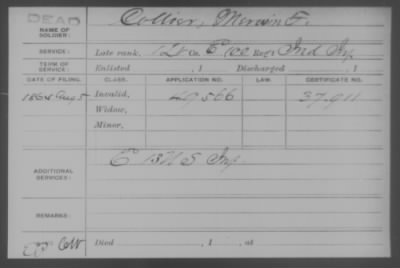 DEAD
NAME OF SOLDIER: Collier, Merwin F.
SERVICE: Late rank, Co. E 100 Reg't Ind Inf
TERM OF SERVICE: Enlisted , 1 Discharged , 1
DATE OF FILING. CLASS. APPLICATION NO. LAW. CERTIFICATE NO.
1864 Aug 5 Invalid, 49566 37.911
Widow,
Minor,
ADDITIONAL SERVICES: E 13 U S Inf
REMARKS:
Died , 1 , at